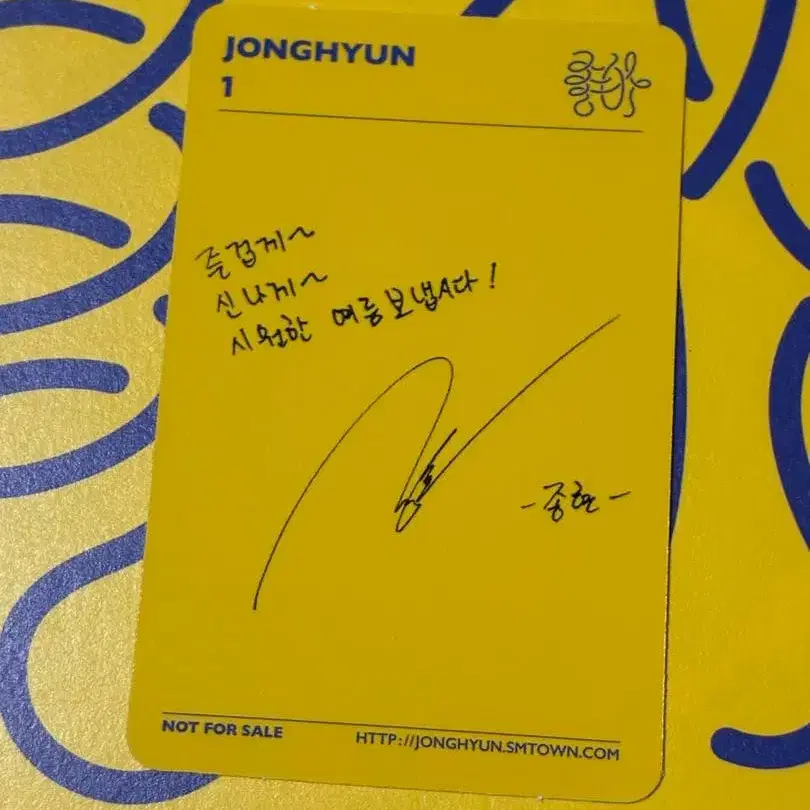 JONGHYUN
1
즐겁게~
신나게~
시원한 여름 보냅시다!
-종현-
NOT FOR SALE
HTTP://JONGHYUN.SMTOWN.COM